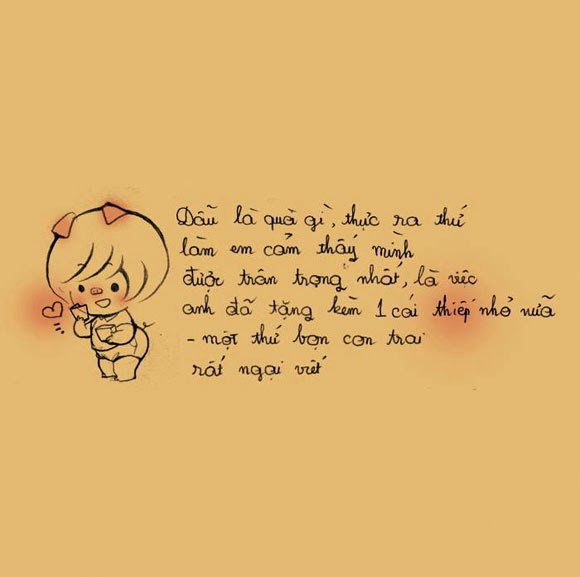 Dẫu là quà gì, thực ra thứ
làm em cảm thấy mình
được trân trọng nhất, là việc
anh đã tặng kèm 1 cái thiếp nhỏ nữa
- một thứ bọn con trai
rất ngại viết